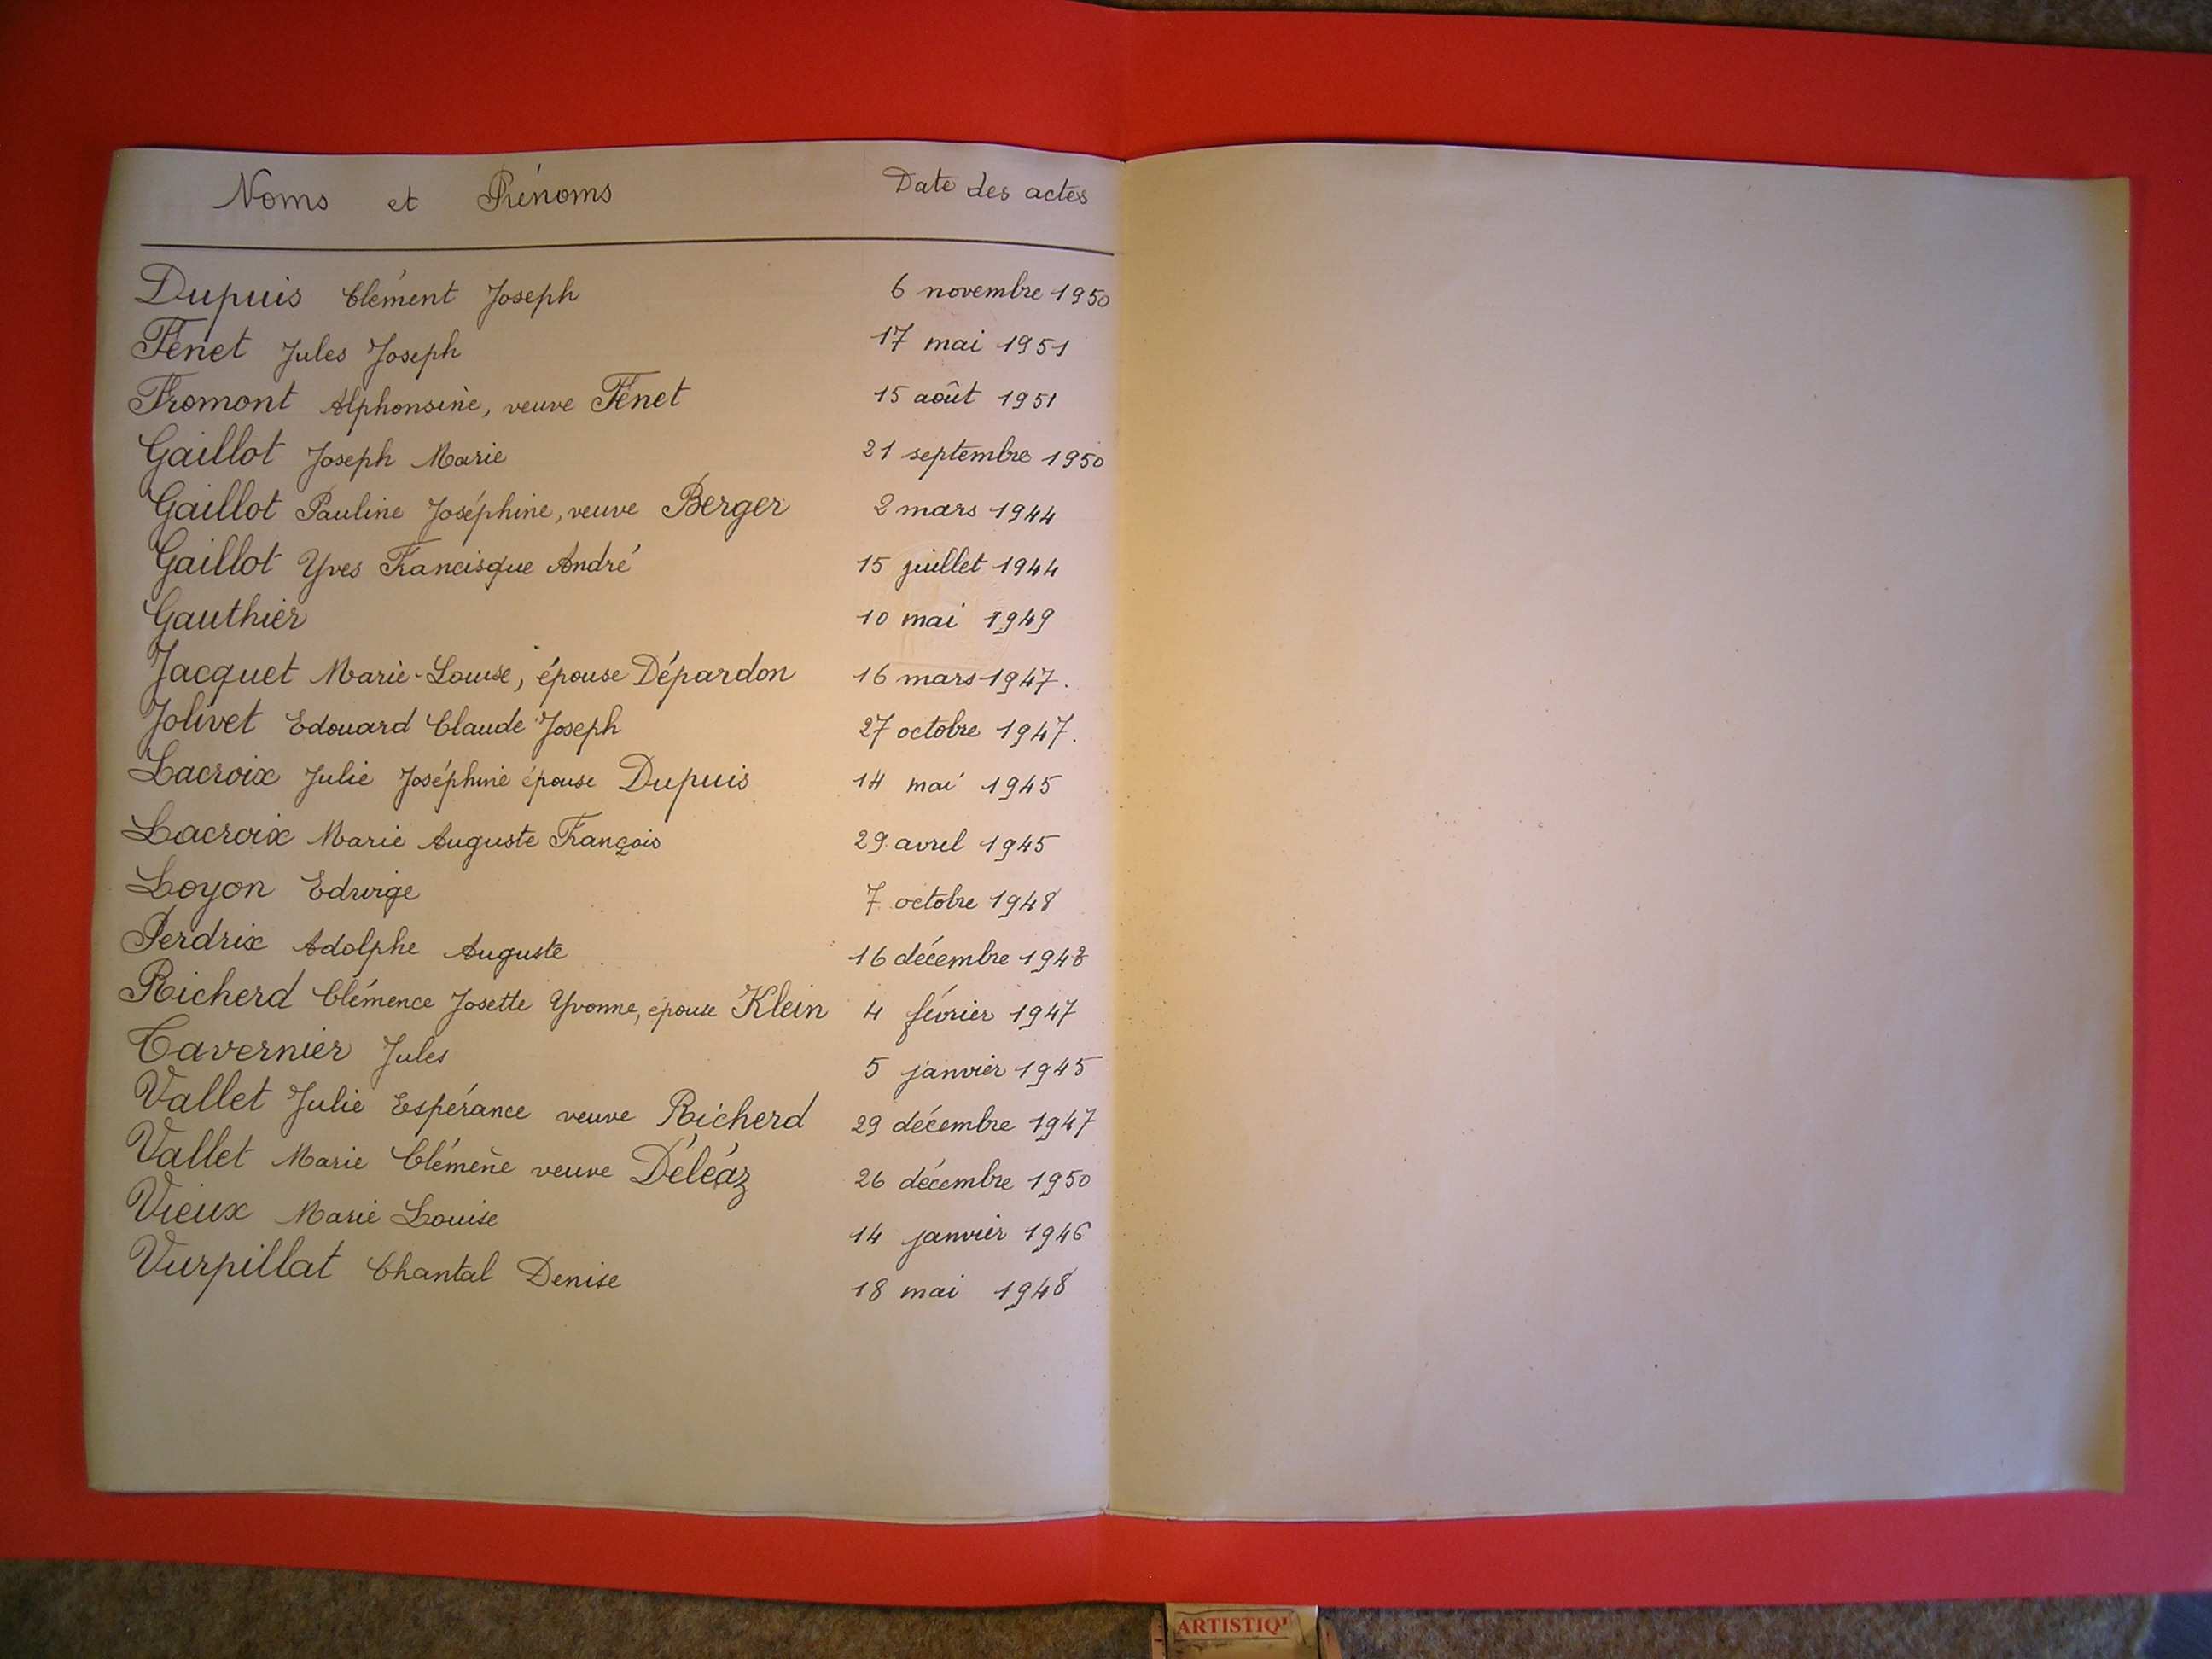 Noms et Prénoms Date des actes
Dupuis Clément Joseph 6 novembre 1950
Fénet Jules Joseph 17 mai 1951
Fromont Alphonsine, veuve Fénet 15 août 1951
Gaillot Joseph Marie 21 septembre 1950
Gaillot Pauline Joséphine, veuve Berger 2 mars 1944
Gaillot Yves Francisque André 15 juillet 1944
Gauthier 10 mai 1949
Jacquet Marie-Louise, épouse Dépardon 16 mars 1947.
Jolivet Edouard Claude Joseph 27 octobre 1947.
Lacroix Julie Joséphine épouse Dupuis 14 mai 1945
Lacroix Marie Auguste François 29 avril 1945
Loyon Edwige 7 octobre 1948
Perdrix Adolphe Auguste 16 décembre 1948
Richerd Clémence Josette Yvonne, épouse Klein 4 février 1947
Tavernier Jules 5 janvier 1945
Vallet Julie Espérance veuve Richerd 29 décembre 1947
Vallet Marie veuve Déléaz 26 décembre 1950
Vieux Marie Louise 14 janvier 1946
Vurpillat Chantal Denise 18 mai 1948